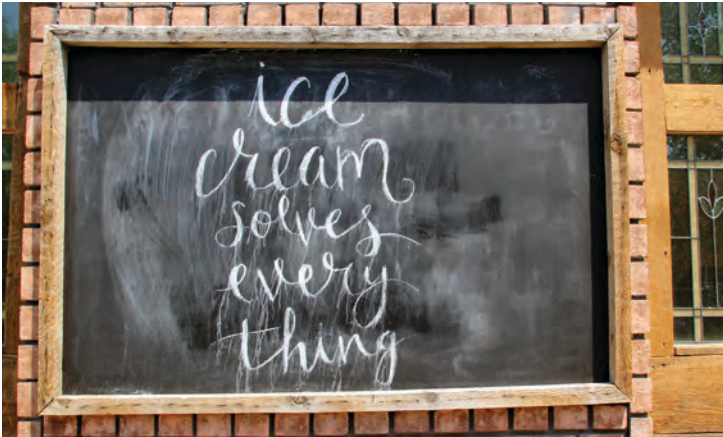 ice
cream
solves
every
thing